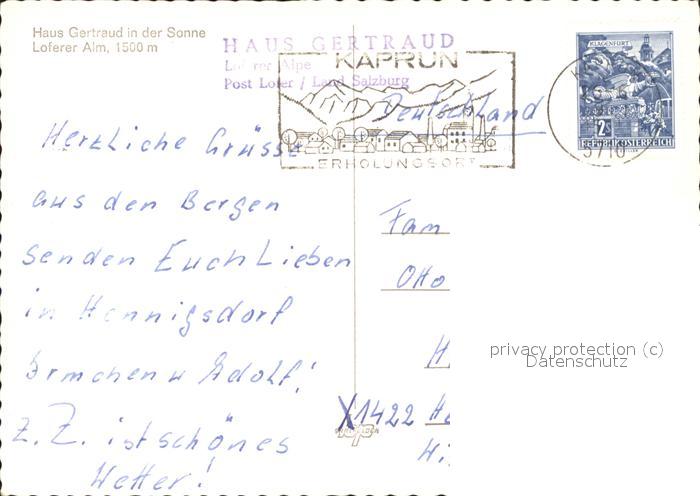 Haus Gertraud in der Sonne
Loferer Alm, 1500 m
HAUS GERTRAUD
Loferer Alpe
Post Lofer / Land Salzburg
KAPRUN
ERHOLUNGSORT
KLAGENFURT
2S
REPUBLIK ÖSTERREICH
5710
Deutschland
Herzliche Grüsse
aus den Bergen
senden Euch Lieben
in Hennigsdorf
Irmchen u Adolf!
Z. Z. ist schönes
Wetter!
Fam
Otto
H
X1422 He
Hi
privacy protection (c)
Datenschutz